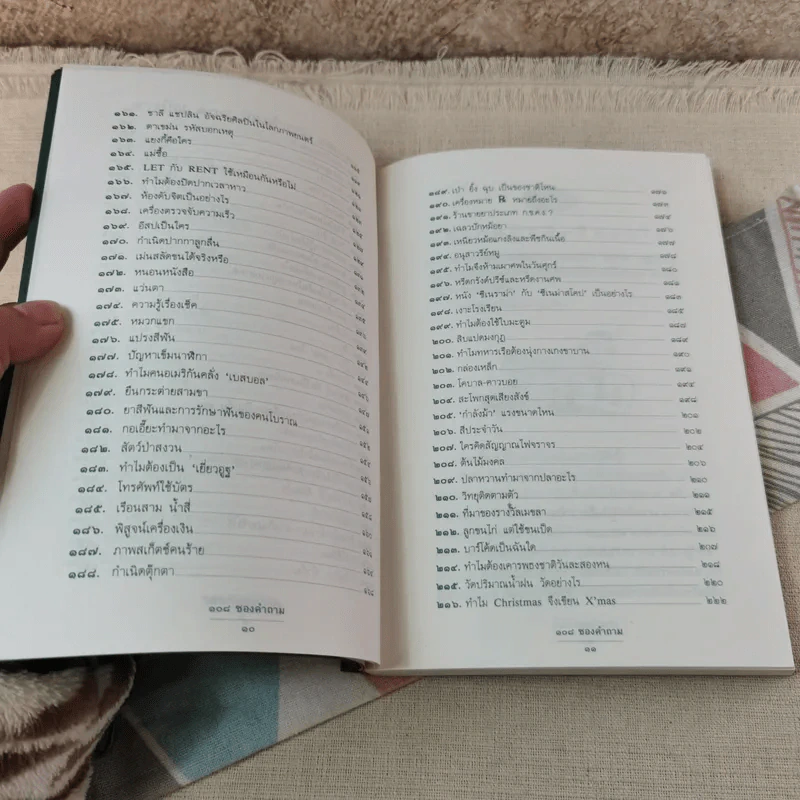 ๑๖๑. ชาลี แชปลิน อัจฉริยศิลปินในโลกภาพยนตร์
๑๖๒. ตาเขม่น รหัสบอกเหตุ
๑๖๓. แยงกี้คือใคร
๑๖๔. แม่ซื้อ
๑๖๕. LET กับ RENT ใช้เหมือนกันหรือไม่
๑๖๖. ทำไมต้องปิดปากเวลาหาว
๑๖๗. ห้องดับจิตเป็นอย่างไร
๑๖๘. เครื่องตรวจจับความเร็ว
๑๖๙. อีสปเป็นใคร
๑๗๐. กำเนิดปากกาลูกลื่น
๑๗๑. เม่นสลัดขนได้จริงหรือ
๑๗๒. หนอนหนังสือ
๑๗๓. แว่นตา
๑๗๔. ความรู้เรื่องเช็ค
๑๗๕. หมวกแขก
๑๗๖. แปรงสีฟัน
๑๗๗. ปัญหาเข็มนาฬิกา
๑๗๘. ทำไมคนอเมริกันคลั่ง 'เบสบอล'
๑๗๙. ยืนกระต่ายสามขา
๑๘๐. ยาสีฟันและการรักษาฟันของคนโบราณ
๑๘๑. กอเอี๊ยะทำมาจากอะไร
๑๘๒. สัตว์ป่าสงวน
๑๘๓. ทำไมต้องเป็น 'เยี่ยวอูฐ'
๑๘๔. โทรศัพท์ใช้บัตร
๑๘๕. เรือนสาม น้ำสี่
๑๘๖. พิสูจน์เครื่องเงิน
๑๘๗. ภาพสเก็ตช์คนร้าย
๑๘๘. กำเนิดตุ๊กตา
๑๐๘ ซองคำถาม
๑๐
๑๘๙. เป่า ยิ้ง ฉุบ เป็นของชาติไหน ๑๗๑
๑๙๐. เครื่องหมาย ℞ หมายถึงอะไร ๑๗๓
๑๙๑. ร้านขายยาประเภท ๑๗๔
๑๙๒. เฉลวปักหม้อยา ๑๗๖
๑๙๓. เหนียวหม้อแกงลิงและพืชกินเนื้อ ๑๗๗
๑๙๔. อนุสาวรีย์หมู ๑๗๘
๑๙๕. ทำไมจึงห้ามเผาศพในวันศุกร์ ๑๘๐
๑๙๖. หรีดกรังด์ปรีซ์และหรีดงานศพ ๑๘๑
๑๙๗. หนัง 'ซีเนราม่า' กับ 'ซีเนม่าสโคป' เป็นอย่างไร ๑๘๓
๑๙๘. เงาะโรงเรียน ๑๘๕
๑๙๙. ทำไมต้องใช้ใบมะตูม ๑๘๗
๒๐๐. สิบแปดมงกุฎ ๑๘๙
๒๐๑. ทำไมทหารเรือต้องนุ่งกางเกงขาบาน ๑๙๐
๒๐๒. กล่องเหล็ก ๑๙๑
๒๐๓. โคบาล-คาวบอย ๑๙๔
๒๐๔. สะโพกสุดเสียงสังข์ ๑๙๘
๒๐๕. 'กำลังม้า' แรงขนาดไหน ๒๐๑
๒๐๖. สีประจำวัน ๒๐๒
๒๐๗. ใครคิดสัญญาณไฟจราจร ๒๐๔
๒๐๘. ต้นไม้มงคล ๒๐๖
๒๐๙. ปลาหวานทำมาจากปลาอะไร ๒๑๐
๒๑๐. วิทยุติดตามตัว ๒๑๑
๒๑๑. ที่มาของรางวัลเมขลา ๒๑๕
๒๑๒. ลูกขนไก่ แต่ใช้ขนเป็ด ๒๑๖
๒๑๓. บาร์โค้ดเป็นฉันใด ๒๐๗
๒๑๔. ทำไมต้องเคารพธงชาติวันละสองหน ๒๑๘
๒๑๕. วัดปริมาณน้ำฝน วัดอย่างไร ๒๒๐
๒๑๖. ทำไม Christmas จึงเขียน X'mas ๒๒๒
๑๐๘ ซองคำถาม
๑๑